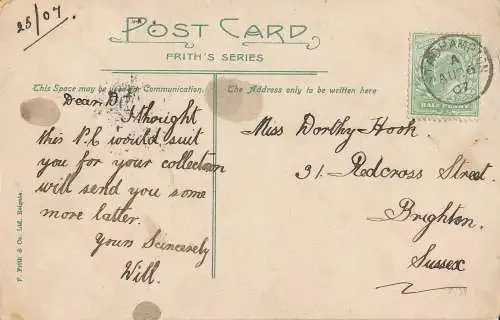 25/07.
POST CARD
FRITH'S SERIES
This Space may be used for Communication.
The Address only to be written here
Dear D
I thought
this P.C would suit
you for your collection
will send you some
more latter.
Yours Scincerely
Will.
Miss Dorthy Hook.
31. Redcross Street.
Brighton.
Sussex
F. Frith & Co. Ltd., Reigate
A
AU
07
HALF PENNY